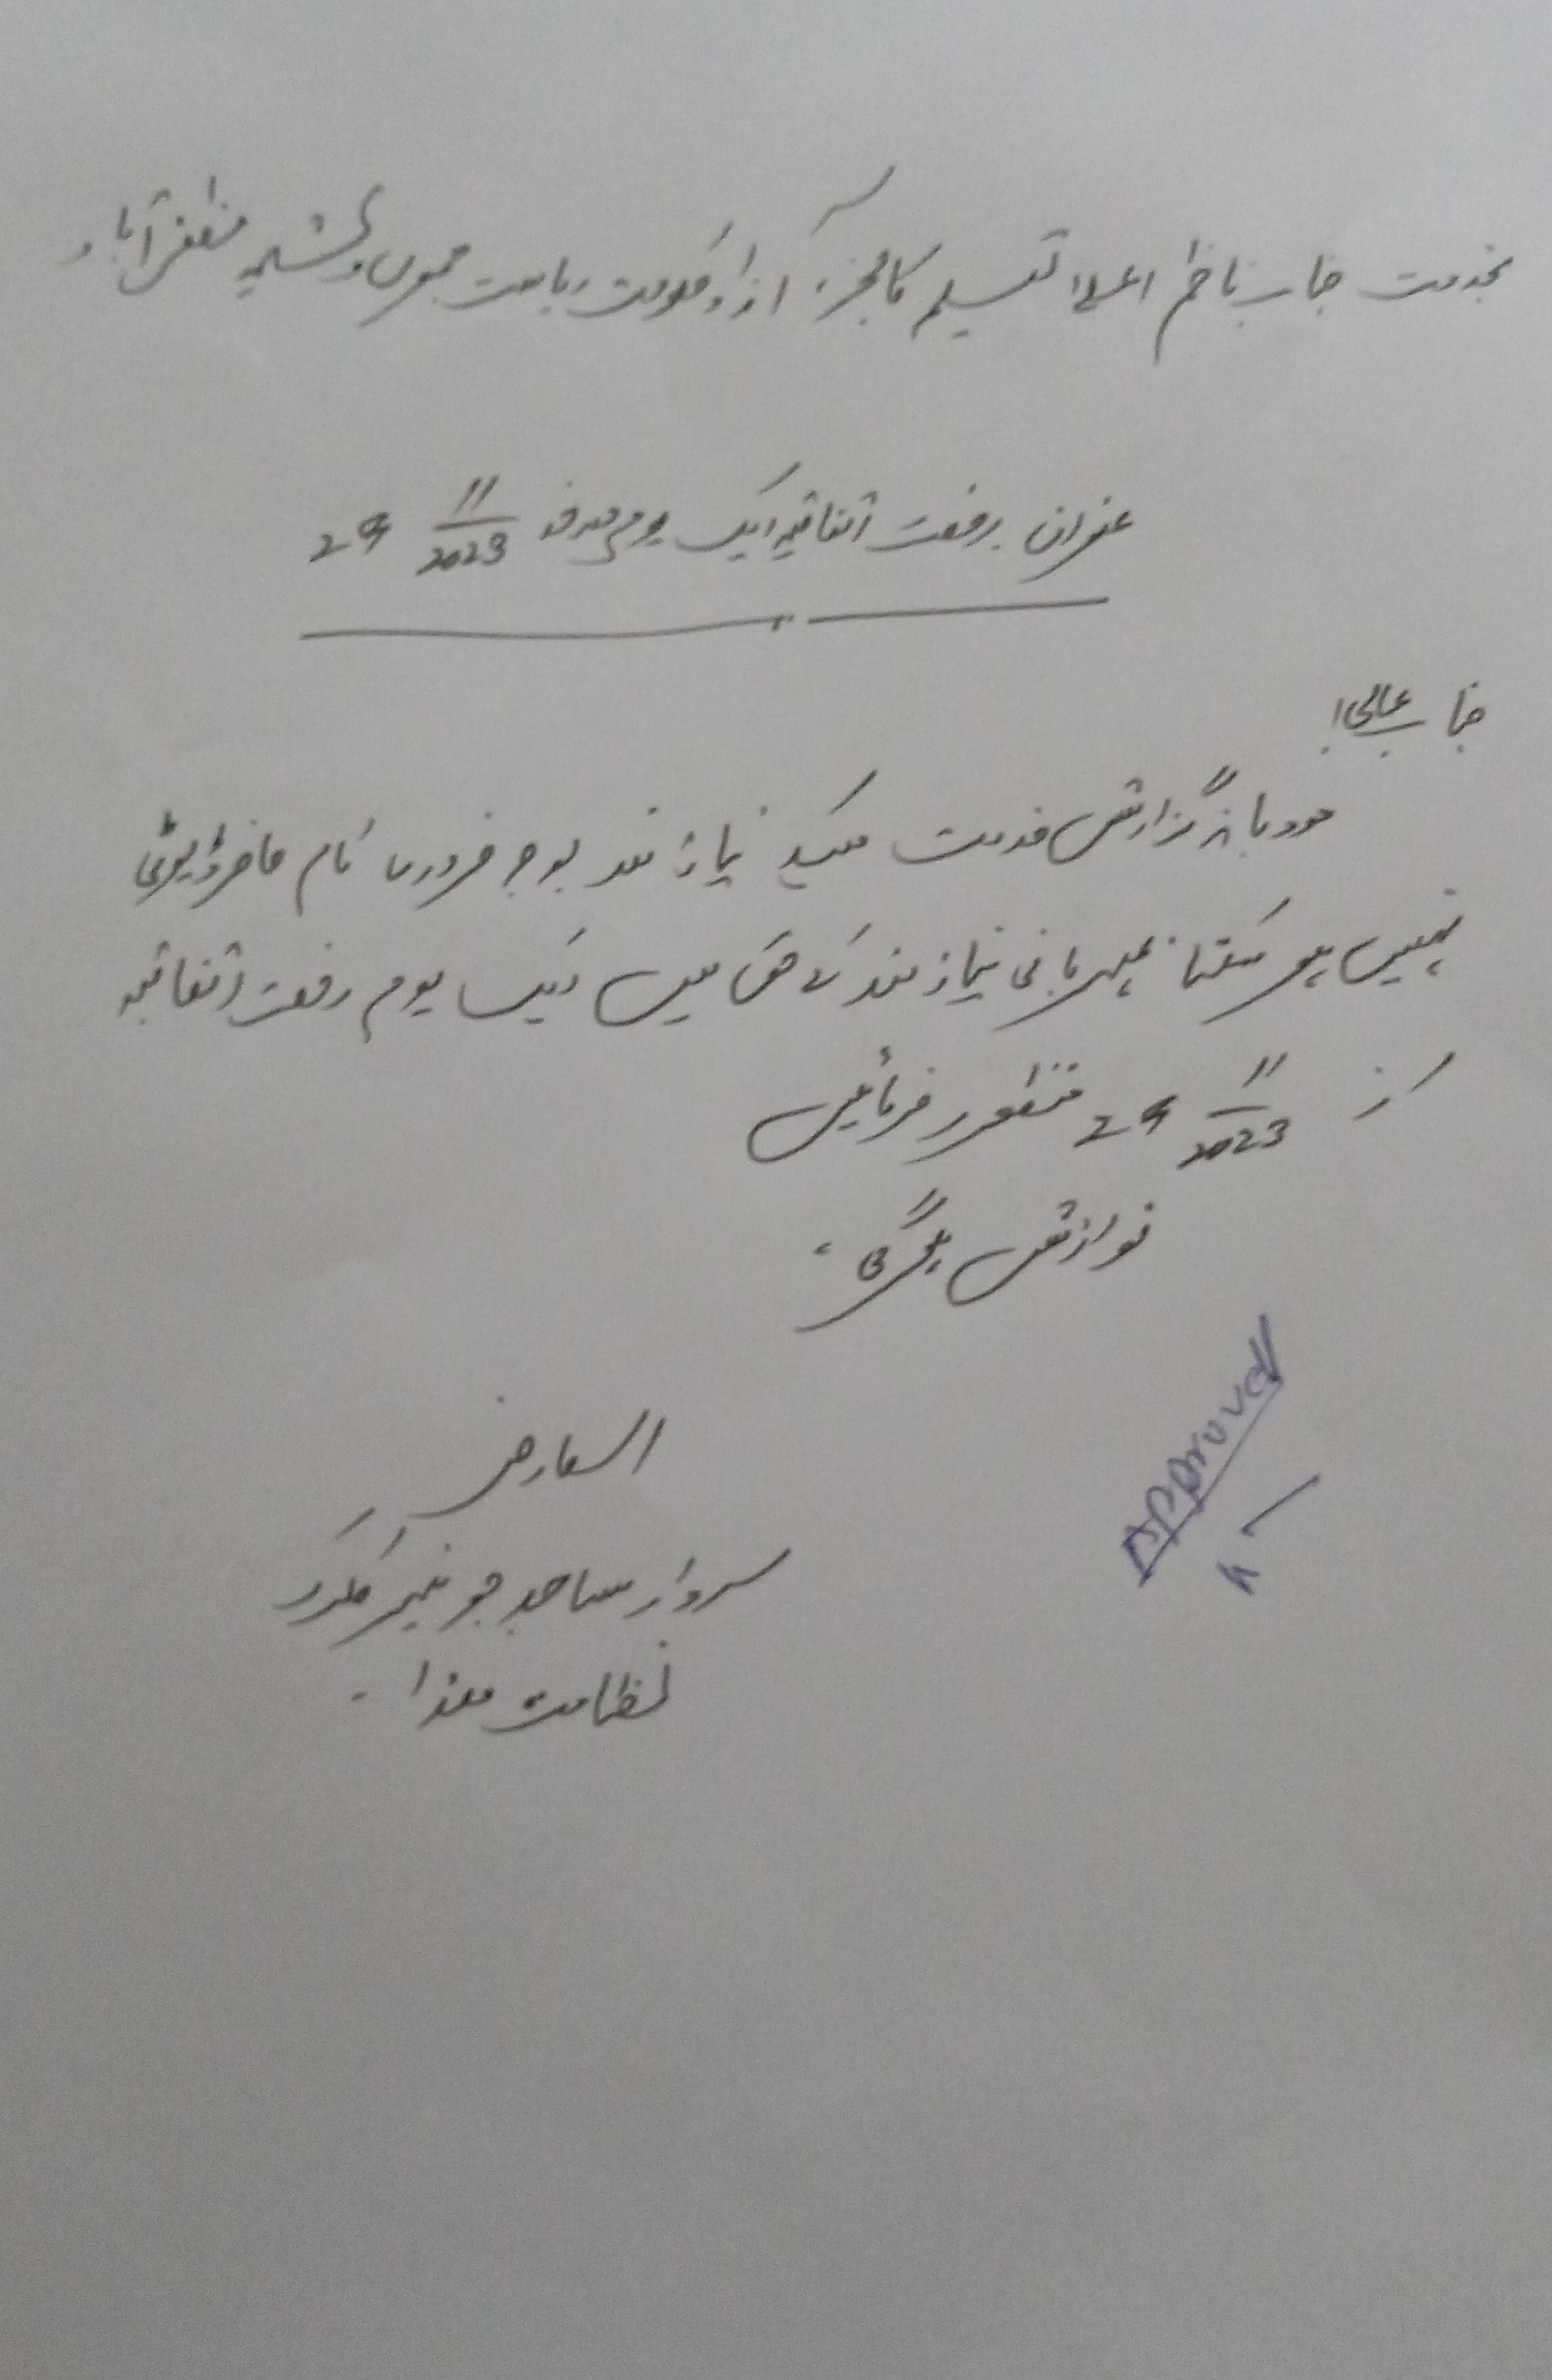 بخدمت جناب ناظم اعلیٰ تعلیم کالجز آزاد حکومت ریاست جموں و کشمیر مظفرآباد
عنوان رخصت اتفاقیہ ایک یوم مورخہ 29 11/2023
جناب عالی!
مودبانہ گزارش خدمت میکہ نیاز مند بوجہ ضروری کام حاضر ڈیوٹی
نہیں ہو سکتا بمہربانی نیاز مند کے حق میں ایک یوم رخصت اتفاقیہ
از 29 11/2023 منظور فرمائیں
نوازش ہوگی۔
العارض
سردار ساجد جونیئر کلرک
نظامت ھذا۔
Approved